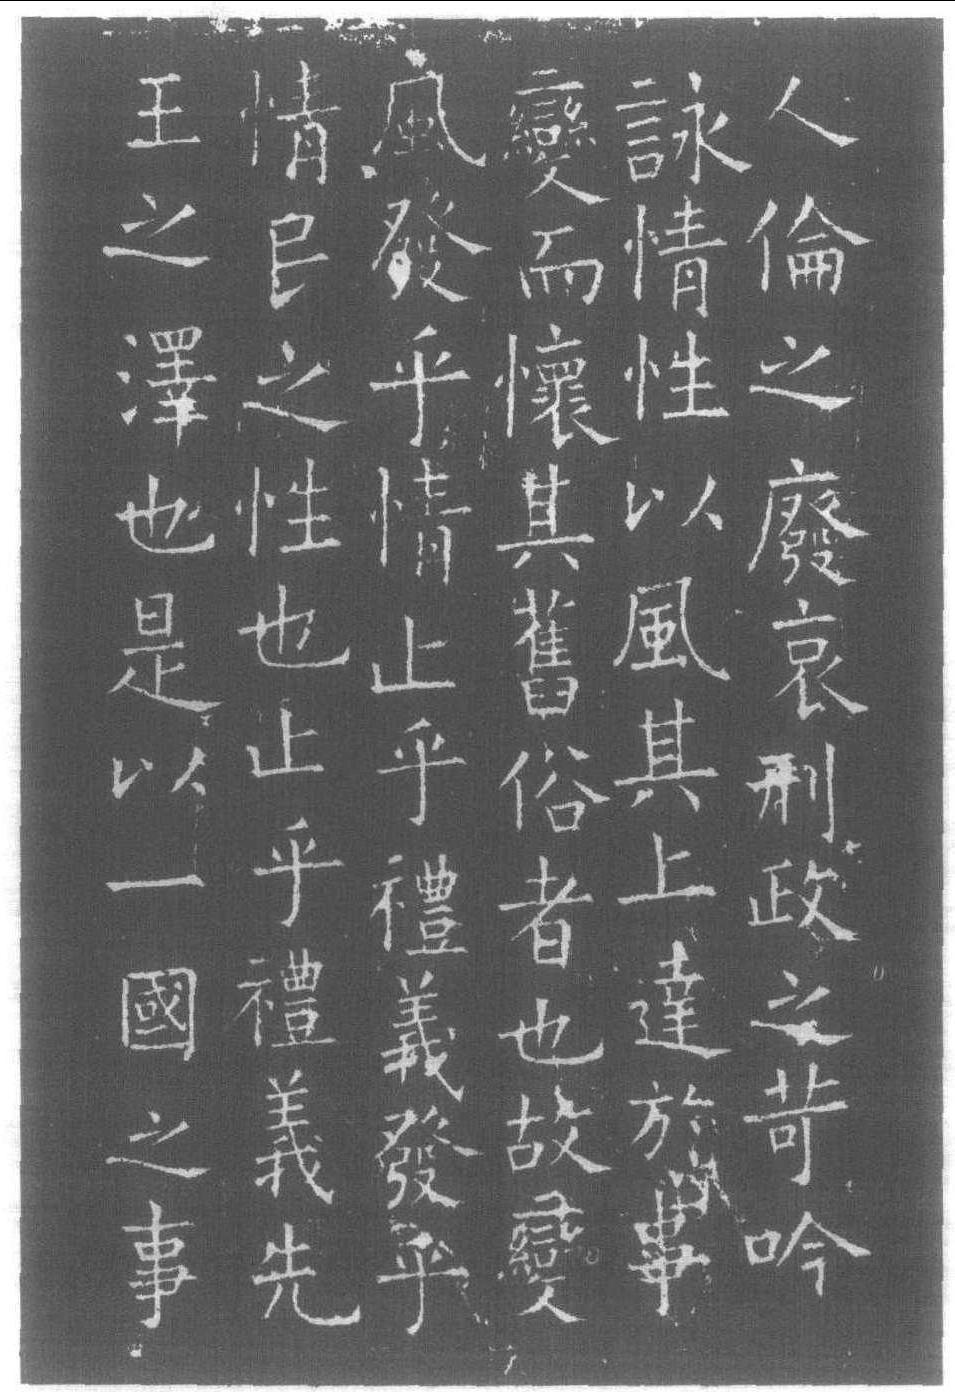 人倫之廢哀刑政之苛吟
詠情性以風其上達於事
變而懷其舊俗者也故變
風發乎情止乎禮義發乎
情民之性也止乎禮義先
王之澤也是以一國之事